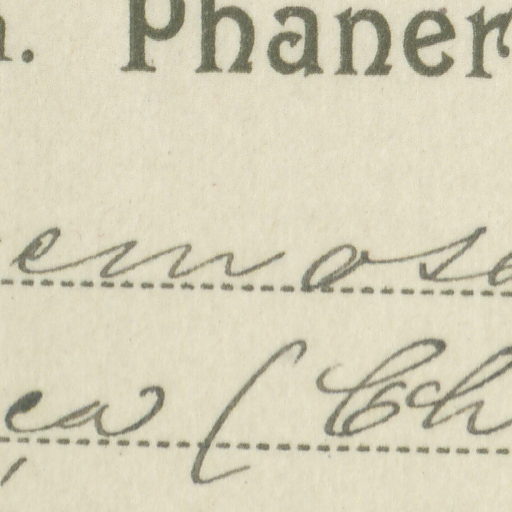 n. Phaner
emosa
ea (Ch